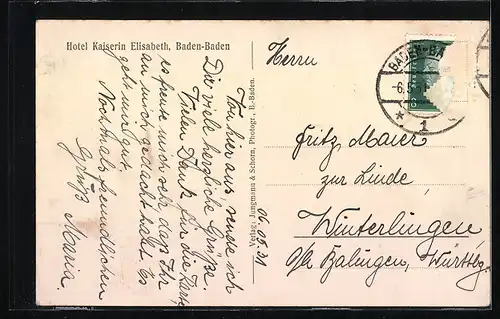 Hotel Kaiserin Elisabeth, Baden-Baden
Von hier aus, sende ich
Die viele herzliche Grüße.
Vielen Dank für die Karte
es freute mich sehr, daß Ihr
an mich gedacht habt. Es
geht mir gut.
Nochmals freundlichen
Gruß Maria
06.05.31
Verlag: Jungmann & Schorn, Photogr., B.-Baden.
BADEN-BA
-6.5
* 1
8
Herrn
Fritz Maier
zur Linde,
Winterlingen
O/A Balingen, Württbg.